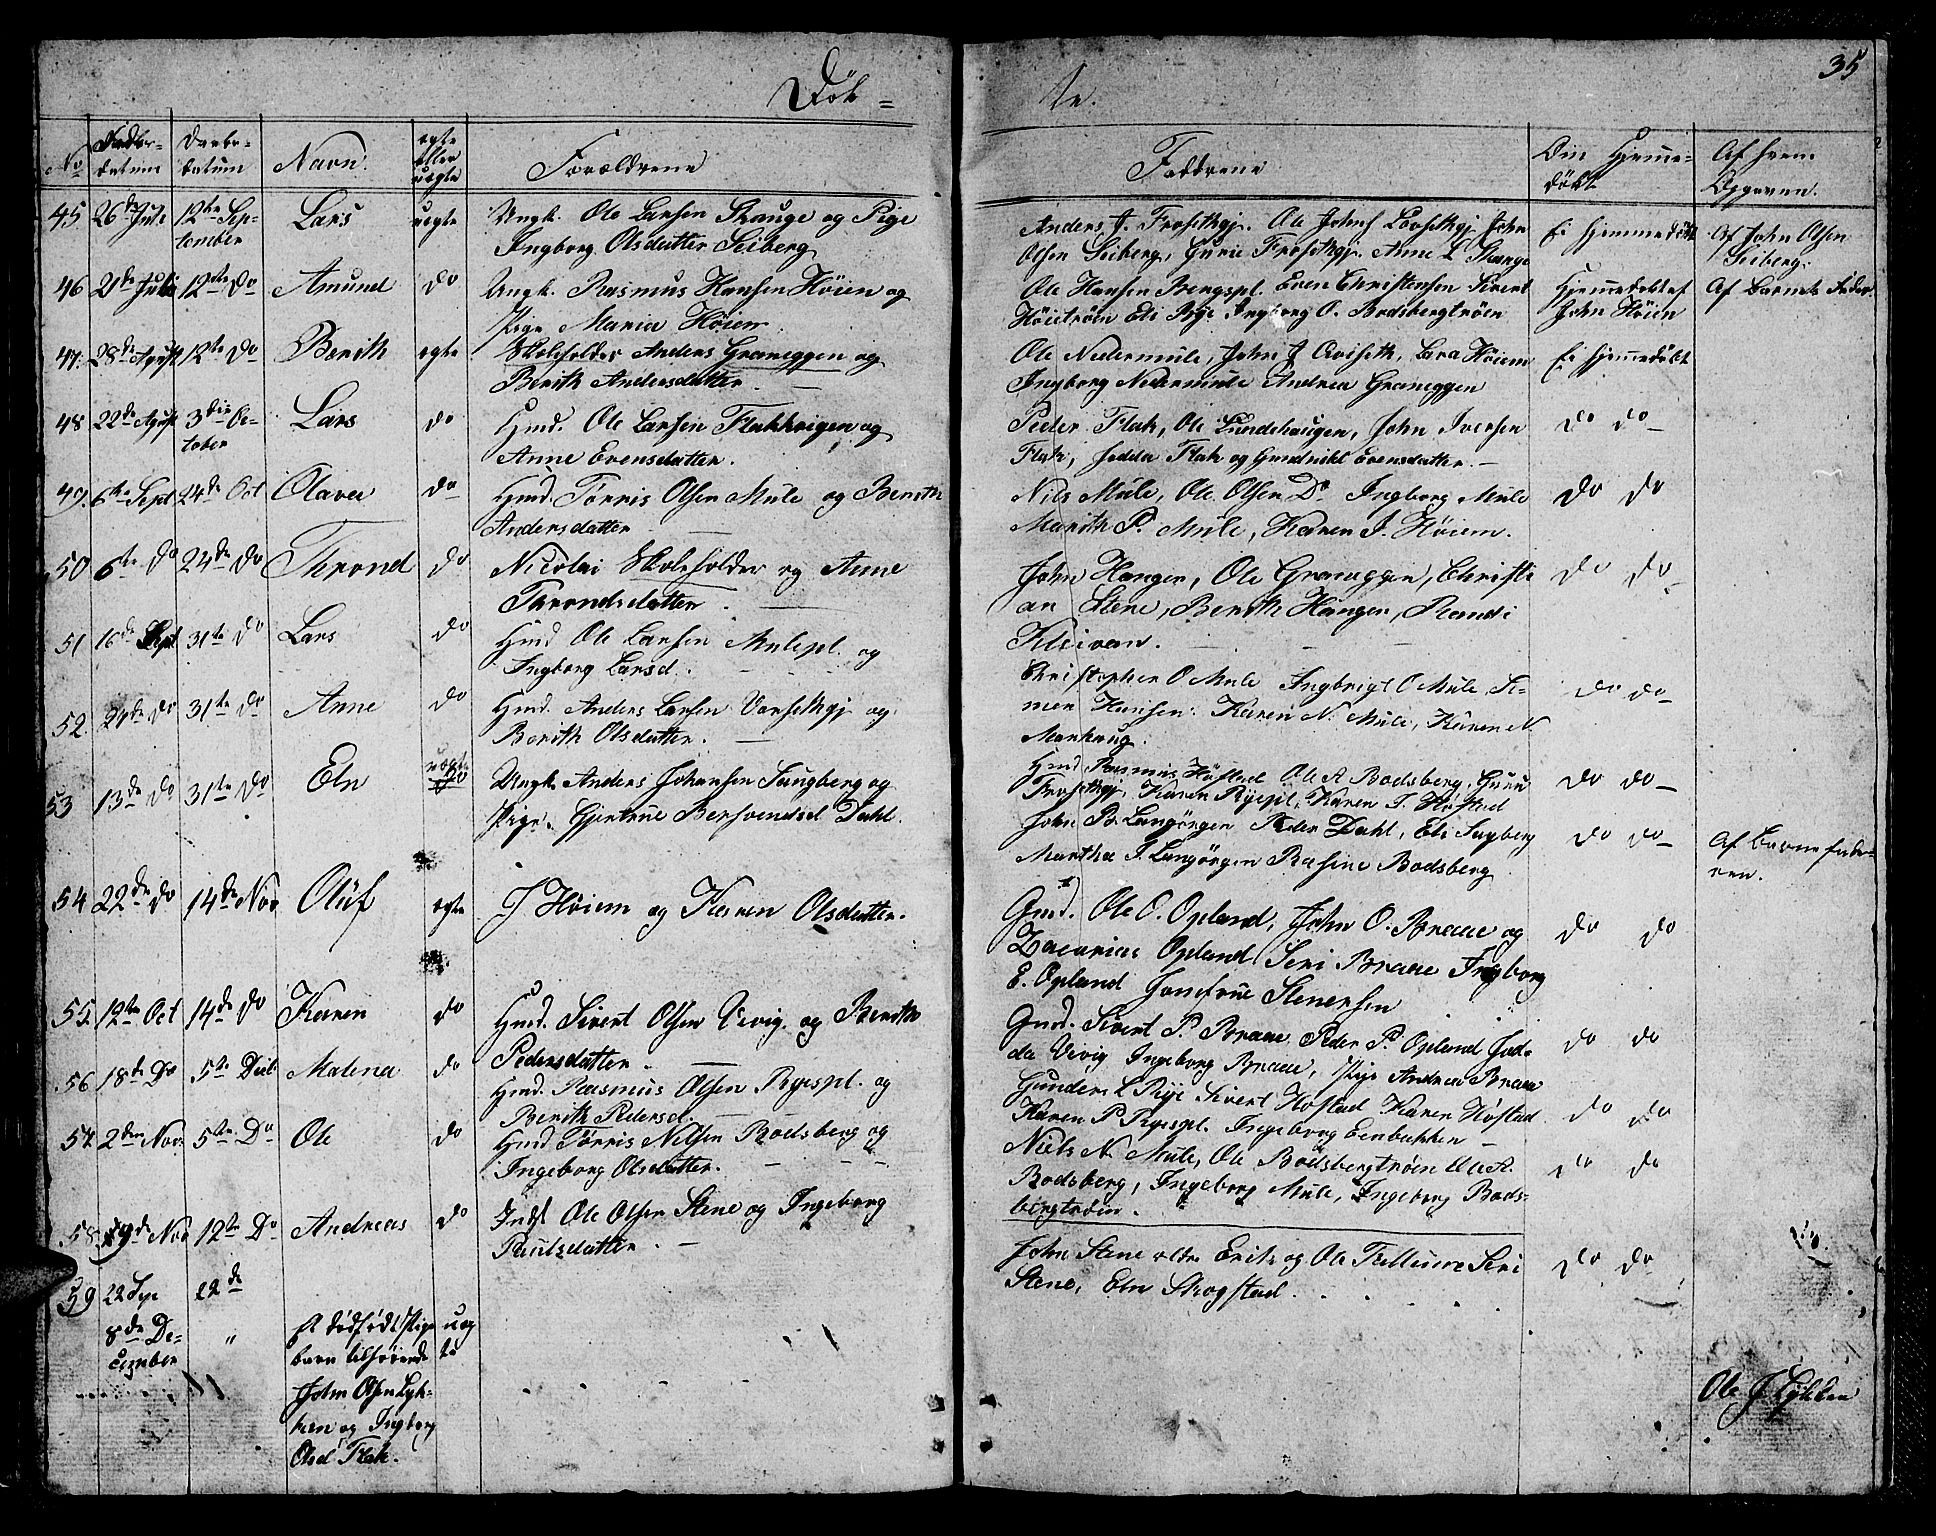 Döb-
te.
35
No
Fødse-
datum
Daabs-
datum
Navn.
egte
eller
uegte
Forældrene
Faddrene
Om Hjemme-
döbt
Af hvem
Opgiven.
45 26de Juli 12te Sep-
tember Lars uegte Ungk. Ole Larsen Skauge og Pige
Ingborg Olsdatter Seiberg
Anders J. Frosethgj. Ole Johns Lorsethgj John
Olsen Seiberg, Gurie Frosethgj. Anne L Skauge
Ei hjemmedöbt
Af John Olsen
Seiberg.
46 21de Juli 12te Do Amund do Ungk. Rasmus Hansen Höien og
Pige Maria Höiem.
Ole Hansen Bergspl. Even Christensen Sivert
Höietröen Eli Rye Ingborg O. Bodsbergtröen
Hjemmedöbt af
John Höien
Af Barnets Fader
47. 28de Agust 12te Do Berith egte Skoleholder Anders Graneggen og
Berith Andersdatter.
Ole Nedermule, John J Qviseth, Lara Höiem
Ingborg Nedermule Andrea Graneggen
Ei hjemmedöbt
48 22de Agust 3die Oc-
tober Lars do Hmd. Ole Larsen Flakkrigen og
Anne Evensdatter.
Peder Flak, Ole Lundehaugen, John Iversen
Flak, Hedda Flak og Gundrikt Evensdatter.
do do
49. 6te Sept 24de Oct Olava do Hmd. Torris Olsen Mule og Berith
Andersdatter
Nils Mule, Ole Olsen Do Ingborg Mule
Marith P. Mule, Karen J. Höiem.
do do
50 6te do 24de do Thrond do Nicolai Skoleholder og Anne
Throndsdatter.
John Hangen, Ole Graneggen, Christi
an Stene, Berith Haugen, Randi
Kleivan.
do do
51 16de Sept 31te do Lars do Hmd Ole Larsen Mulespl. og
Ingborg Larsd.
Christopher O Mule Ingbrigt O Mule Si-
men Hansen. Karen N. Mule, Karen N.
Markaug.
do do
52. 24de do 31te do Anne do Hmd. Anders Larsen Vorsethgj og
Berith Olsdatter.
Hmd Rasmus Höstad Ole A Bodsberg. Guru
Frosethgj. Karen Ryespl, Karen T. Höstad
do do
53 13de do 31te do Eln uegte
do Ungk. Anders Johansen Saugberg og
Pige. Gjertrue Bersvendsd Dahl.
John B. Langörgen Peder Dahl, Eli Sagberg
Martha J. Langörgen Rasine Bodsberg
do do
Af Barnefade-
ren.
54 22de do 14de Nov Oluf egte J Höiem og Karen Olsdatter.
Gmd. Ole O. Opland, John O. Braae og
Zacarias Opland Seri Braae Ingborg
E. Opland Jonetrue Stenersen
do do
55. 12te Oct 14de do Karen do Hmd. Sivert Olsen Vivig. og Berith
Pedersdatter.
Gmd. Sivert P. Braae Peder P. Opland Jod-
da Vivig Ingeborg Braae, Pige Andrea Braae
do do
56 18de Do 5te Deb Malena do Hmd. Rasmus Olsen Ryespl. og
Berith Pedersd.
Gunder L Rye Sivert Höstad Karen Höstad
Karen P Ryespl. Ingeborg Eenbakken
do do
57. 2den Nov. 5te Do Ole do Hmd Torris Nilsen Bodsberg og
Ingeborg Olsdatter.
Niels N. Mule, Ole Bodsbergtröen Ole A.
Bodsberg, Ingeborg Mule, Ingeborg Bods-
bergtröen.
do do
58 19de Nov 12te Do Andreas do Inds Ole Olsen Stene og Ingeborg
Paulsdatter.
John Stene ældre Erik og Ole Tellium Seri
Stene, Eln Skogstad.
do do
59 22 Sep 22de
8de De-
cember " Et dødfødt Pige uæg
barn tilhørende te
John Olsen Lyk-
ken og Ingborg
Olsd Flak.
Ole J Lykken